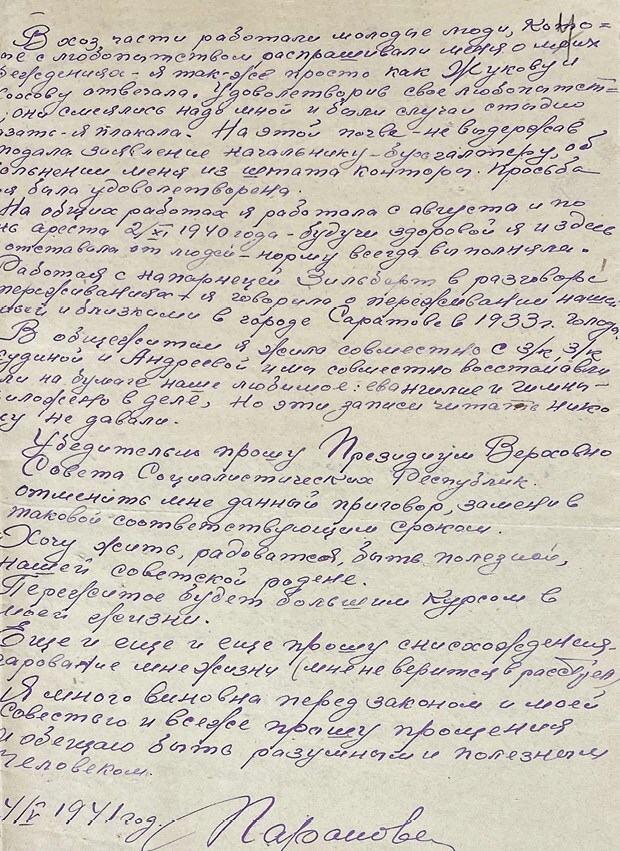 В хоз. части работали молодые люди, кото=
ые с любопытством распрашивали меня о моих
беждениях - я так-же просто как Жукову и
сосову отвечала. Удовлетворив свое любопытст=
, они смеялись надо мной и были случаи стыдно
азать - я плакала. На этой почве - не выдержав
подала заявление начальнику - бухгалтеру, об
вольнении меня из штата конторы. Просьба
я была удовлетворена.
На общих работах я работала с августа и по
нь ареста 2/XI 1940 года - будучи здоровой я и здесь
отставала от людей - норму всегда выполняла.
Работая с напарницей Зильберт в разговоре
переживаниях я говорила о переживании наши
мьи и близкими в городе Саратове в 1933 г. голода.
В общежитии я жила совместно с з/к, з/к
судиной и Андреевой и мы совместно восстанавли
ли на бумаге наше любимое: евангилие и гимны -
иложено в деле, но эти записи читать нико
му не давали.
Убедительно прошу Президиум Верховно
Совета Социалистических Республик.
отменить мне данный приговор, заменив
таковой соответствующим сроком.
Хочу жить, радоватся, быть полезной,
нашей советской родене.
Пережитое будет большим курсом в
моей жизни.
Еще и еще и еще прошу снисхождения -
дарование мне жизни (мне не верится в расстрел)
Я много виновна перед законом и моей
Совестью и все же прошу прощения
и обещаю быть разумным и полезным
человеком.
4/V 1941 год.